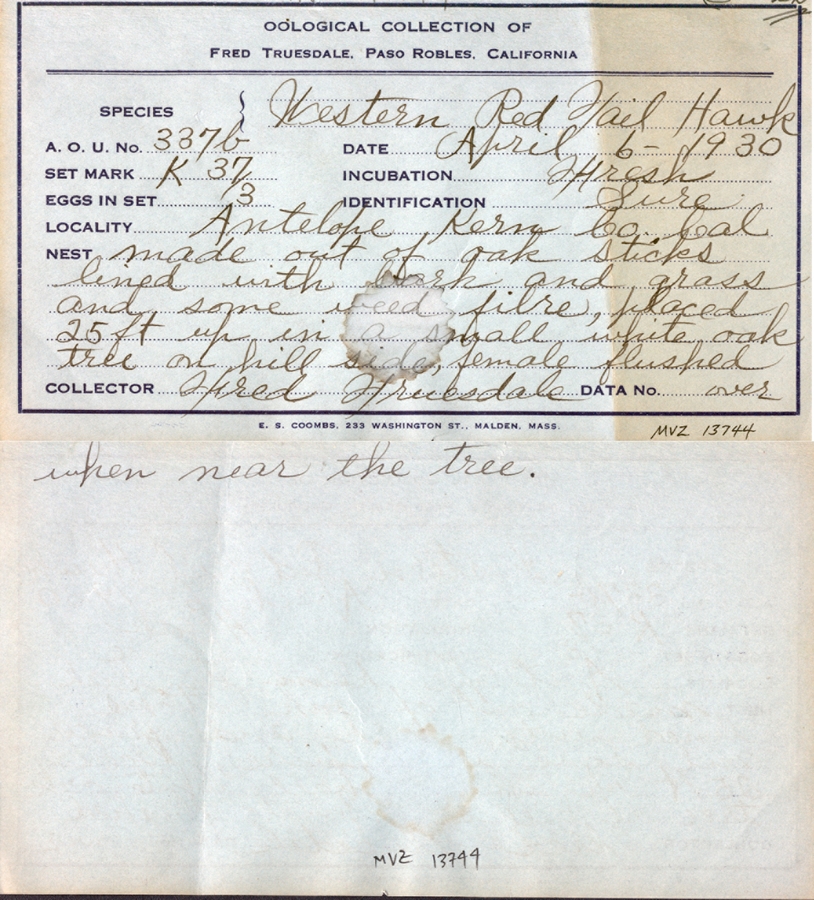 OÖLOGICAL COLLECTION OF
FRED TRUESDALE, PASO ROBLES, CALIFORNIA
SPECIES } Western Red Tail Hawk
A. O. U. No. 337b DATE April 6- 1930
SET MARK K 37 INCUBATION Fresh
EGGS IN SET 3 IDENTIFICATION Sure
LOCALITY Antelope, Kern Co. Cal
NEST made out of oak sticks
lined with bark and grass
and some weed fibre, placed
25 ft up in a small white oak
tree on hill side, female flushed
COLLECTOR Fred Truesdale DATA No. over
E. S. COOMBS, 233 WASHINGTON ST., MALDEN, MASS.
MVZ 13744
when near the tree.
MVZ 13744